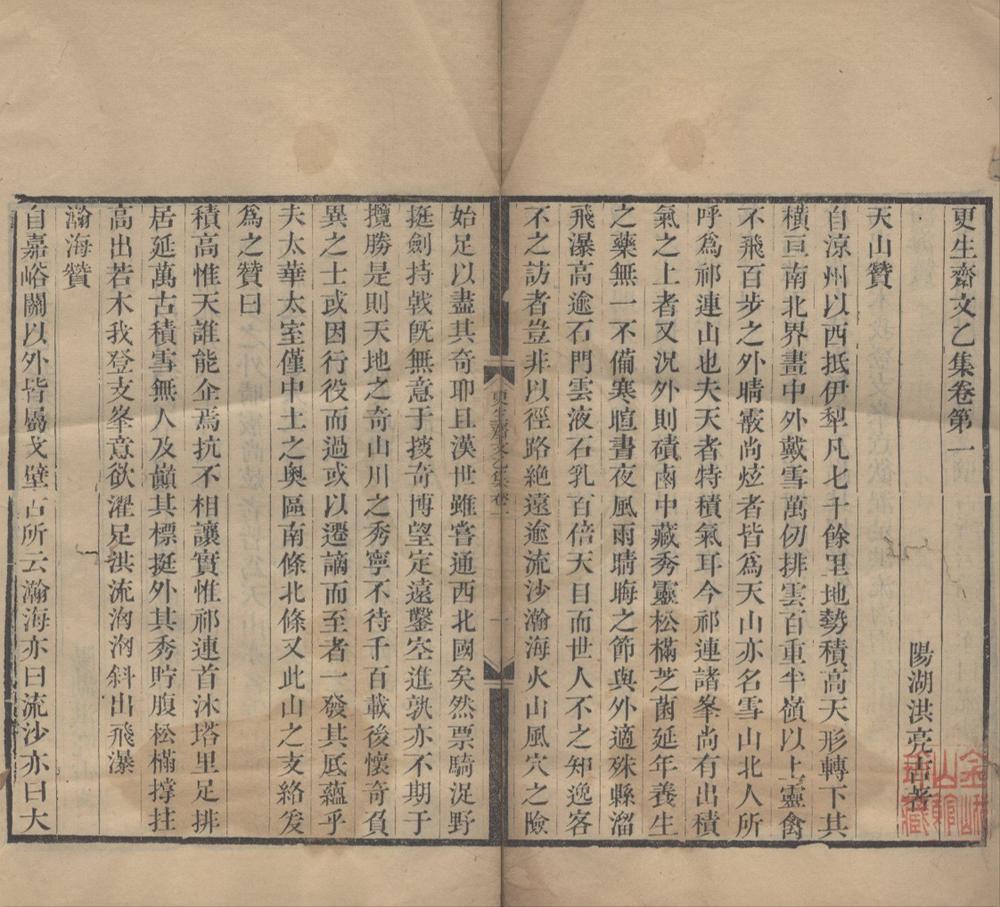 更生齋文乙集卷第一
陽湖洪亮吉著
天山贊
自涼州以西抵伊犁凡七千餘里地勢積高天形轉下其
橫亘南北界畫中外戴雪萬仞排雲百重半嶺以上靈禽
不飛百步之外晴霰尚炫者皆爲天山亦名雪山北人所
呼爲祁連山也夫天者特積氣耳今祁連諸峯尚有出積
氣之上者又況外則磧鹵中藏秀靈松樠芝菌延年養生
之藥無一不備寒暄晝夜風雨晴晦之節與外適殊縣溜
飛瀑高逾石門雲液石乳百倍天目而世人不之知逸客
不之訪者豈非以徑路絶遠逾流沙瀚海火山風穴之險
更生齋文乙集卷一
一
始足以盡其奇耶且漢世雖嘗通西北國矣然票騎浞野
挺劍持戟旣無意于掞奇博望定遠鑿空進孰亦不期于
攬勝是則天地之奇山川之秀寧不待千百載後懷奇負
異之士或因行役而過或以遷謫而至者一發其底蘊乎
夫太華太室僅中土之奧區南條北條又此山之支絡爰
爲之贊曰
積高惟天誰能企焉抗不相讓實惟祁連首沐塔里足排
居延萬古積雪無人及巔其標挺外其秀貯腹松樠撐拄
高出若木我登支峯意欲濯足洪流洶洶斜出飛瀑
瀚海贊
自嘉峪關以外皆屬戈壁古所云瀚海亦曰流沙亦曰大